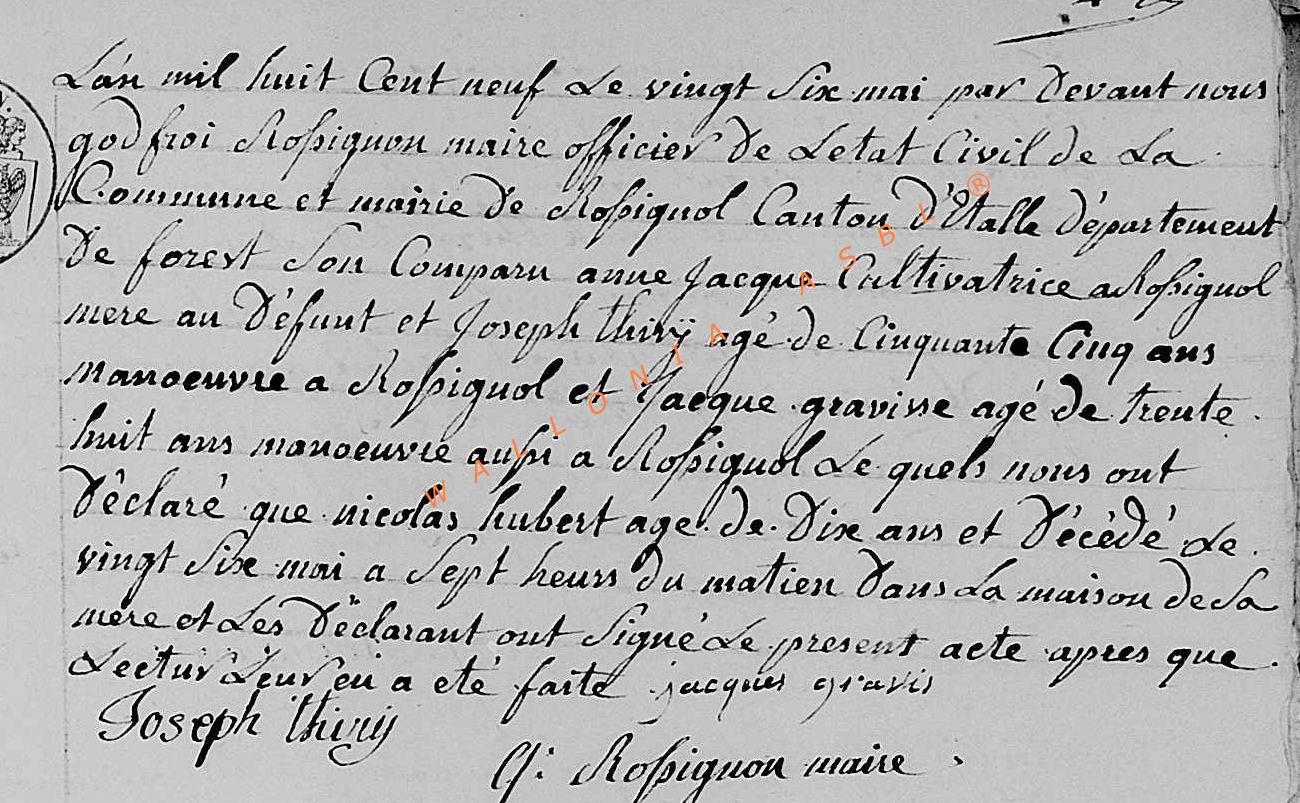 L'an mil huit Cent neuf Le vingt Six mai par Devant nous
godfroi Rossignon maire officier De Letat Civil de La
Commune et mairie De Rossignol Canton d'Etalle département
De forest Son Comparu anne Jacque Cultivatrice a Rossignol
mere au Défunt et Joseph thirÿ agé de Cinquante Cinq ans
manoeuvre a Rossignol et Jacque gravisse agé de trente
huit ans manoeuvre aussi a Rossignol Le quels nous ont
Déclaré que nicolas hubert age de Dix ans et Décédé Le
vingt Six mai a Sept heurs du matien Dans La maison de Sa
mere et Les Déclarant ont Signé Le present acte apres que
Lectur Leur en a eté faite jacques gravis
Joseph thirÿ
G: Rossignon maire
WALLONIA ASBL ®